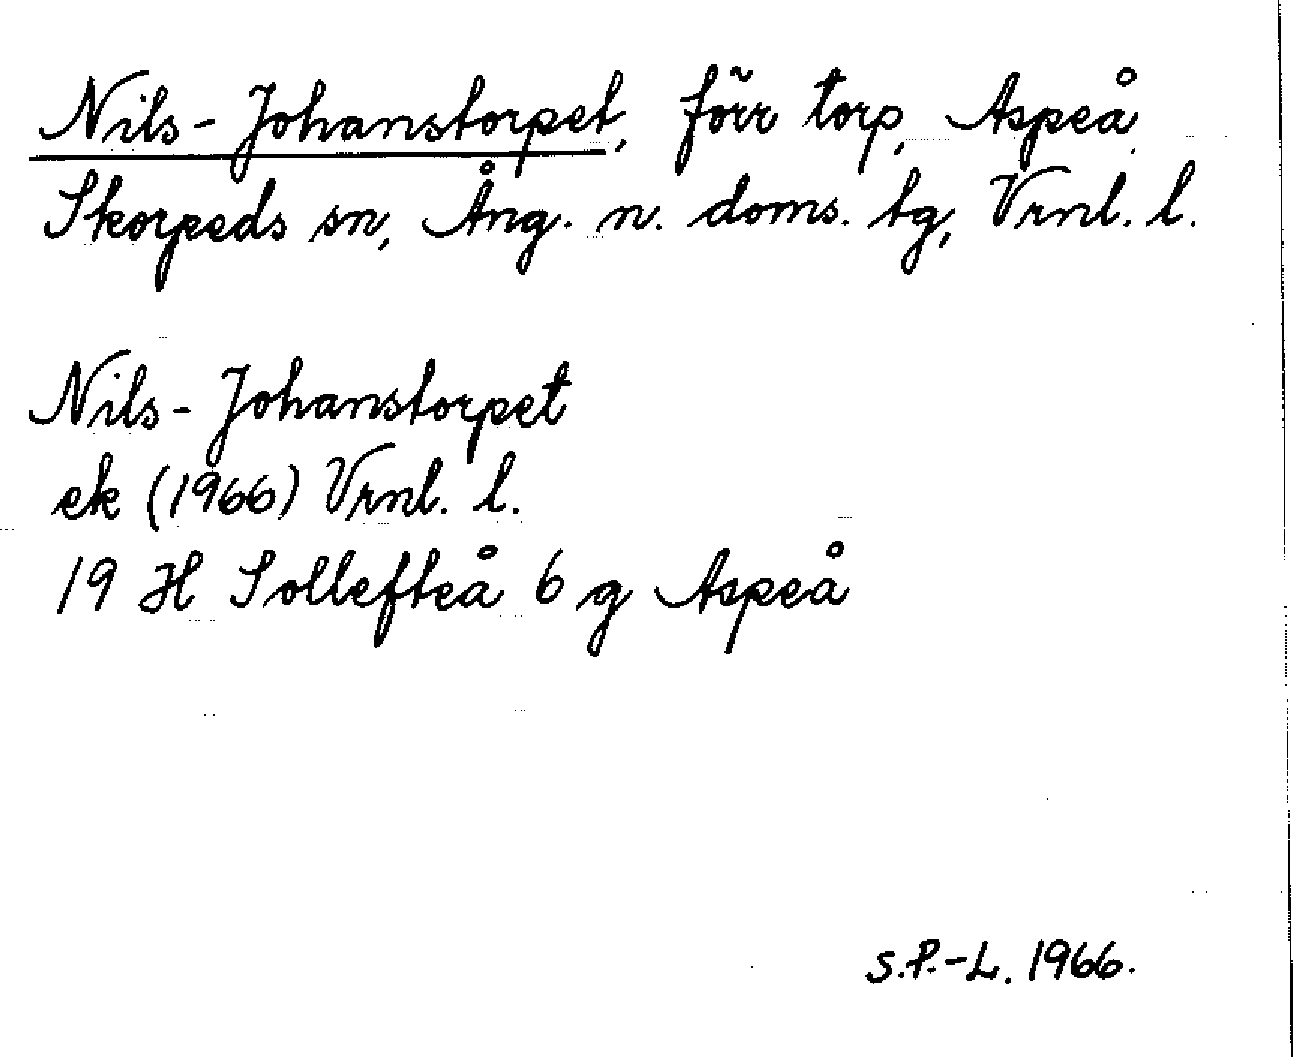 Nils-Johanstorpet, förr torp, Aspeå,
Skorpeds sn, Ång. n. doms. tg, Vrnl. l.
Nils-Johanstorpet
ek (1966) Vrnl. l.
19 H Sollefteå 6 g Aspeå
S.P.-L. 1966.